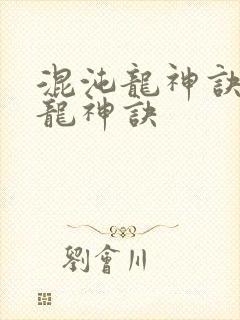 混沌龍神訣
龍神訣
劉會川